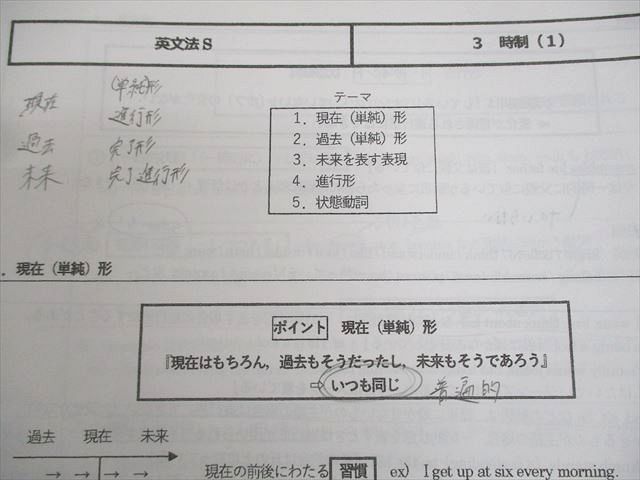 英文法S
3 時制（1）
現在 (単純)形
進行形
過去 完了形
未来 完了進行形
テーマ
1．現在（単純）形
2．過去（単純）形
3．未来を表す表現
4．進行形
5．状態動詞
．現在（単純）形
ポイント 現在（単純）形
『現在はもちろん，過去もそうだったし，未来もそうであろう』
⇨ いつも同じ 普遍的
過去 現在 未来
→ → → →
現在の前後にわたる 習慣 ex) I get up at six every morning.